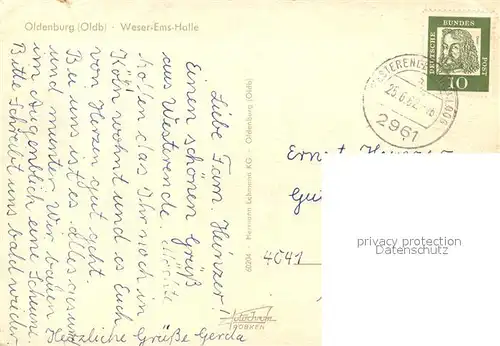 Oldenburg (Oldb) · Weser-Ems-Halle
Liebe Fam. Heinzer!
Einen schönen Grüß
aus Westerende.
hoffen das Ihr noch in
Köln wohnt und es Euch
von Herzen gut geht.
Bei uns ist es alles gesund
und munter Wir bauen
im Augenblick eine Scheune
Bitte Schreibt uns bald wieder
Herzliche Grüße Gerda
60204 · Hermann Lebmann KG · Oldenburg (Oldb)
DEUTSCHE BUNDESPOST
10
25.6.62
2961
Ernst
4041
privacy protection
Datenschutz